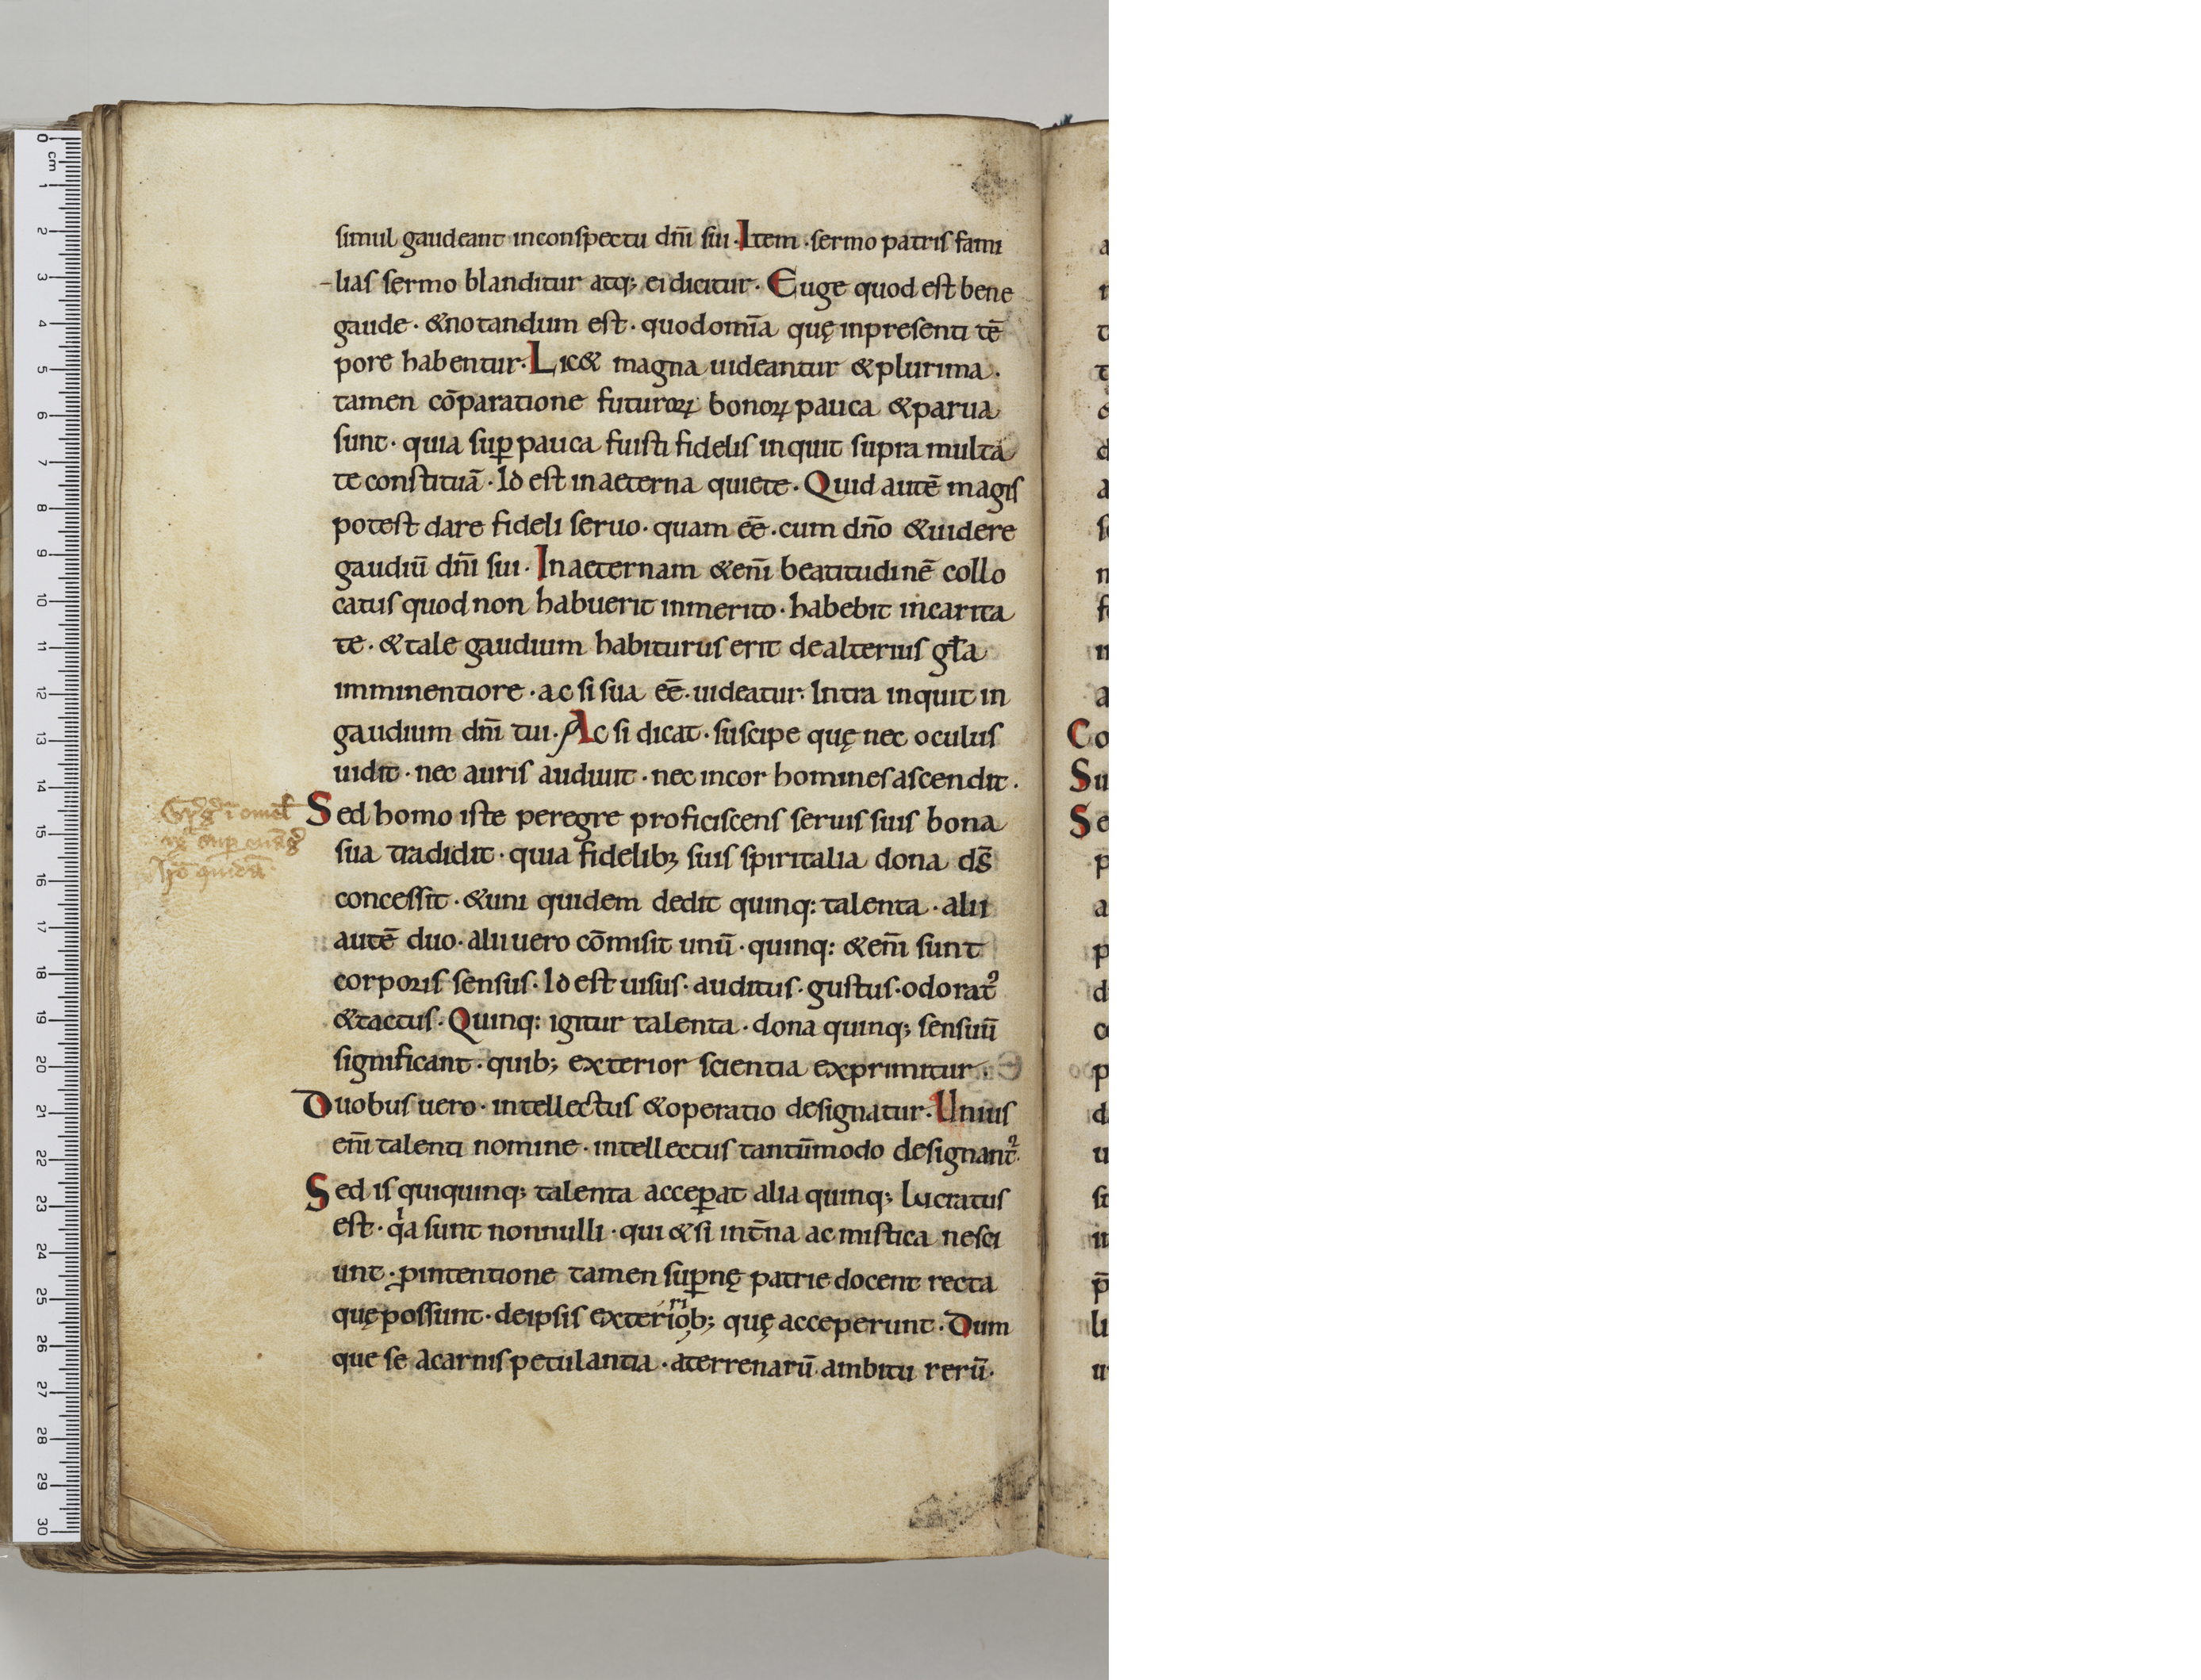 simul gaudeant inconspectu dn̄i sui. Item. sermo patris fami
-lias sermo blanditur atq; ei dicitur. Euge quod est bene
gaude. & notandum est. quod om̄ia quę inpresenti tē
pore habentur. Lic& magna uideantur & plurima.
tamen cōparatione futuroꝝ bonoꝝ pauca & parua
sunt. quia suꝑ pauca fuisti fidelis inquit supra multa
te constituā. Id est in aeterna quiete. Quid autē magis
potest dare fideli seruo. quam eē. cum dn̄o & uidere
gaudiū dn̄i sui. In aeternam &en̄i beatitudinē collo
catus quod non habuerit inmerito. habebit incarita
te. & tale gaudium habiturus erit de alterius gl̄a
imminentiore. ac si sua eē. uideatur. Intra inquit in
gaudium dn̄i tui. Ac si dicat. suscipe quę nec oculus
uidit. nec auris audiuit. nec incor homines ascendit.
Sed homo iste peregre proficiscens seruis suis bona
sua tradidit. quia fidelib; suis spiritalia dona ds̄
concessit. & uni quidem dedit quinq: talenta. alii
autē duo. alii uero cōmisit unū. quinq: &en̄i sunt
corporis sensus. Id est uisus. auditus. gustus. odoratꝰ
& tactus. Quinq: igitur talenta. dona quinq; sensuū
significant. quib; exterior scientia exprimitur.
Duobus uero. intellectus & operatio designatur. Unius
en̄i talenti nomine. intellectus tantūmodo designant᷑.
Sed is qui quinq; talenta acceꝑat alia quinq; lucratus
est. qͥa sunt nonnulli. qui & si int̄na ac mistica nesci
unt. ꝑintentione tamen suꝑnę patrie docent recta
quę possunt. de ipsis exteriorib; quę acceperunt. Dum
que se a carnis petulantia. a terrenarū ambitu rerū.